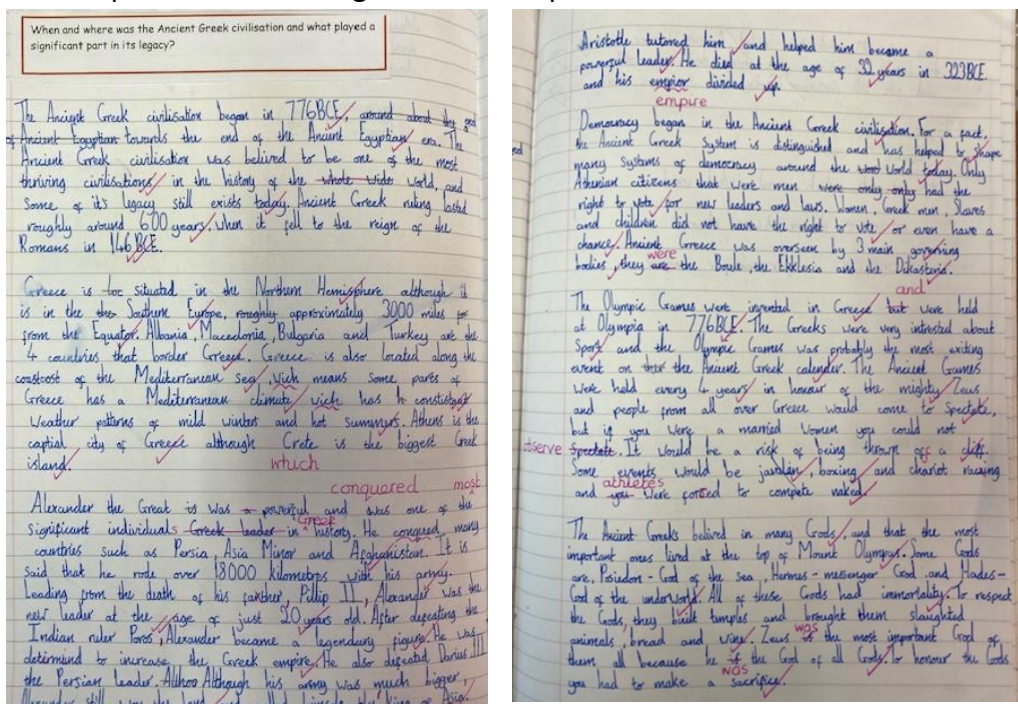 When and where was the Ancient Greek civilisation and what played a
significant part in its legacy?
The Ancient Greek civilisation began in 776BCE, around about the end
of Ancient Egyptian towards the end of the Ancient Egyptian era. The
Ancient Greek civilisation was belived to be one of the most
thriving civilisations, in the history of the whole wide world, and
some of it's legacy still exists today. Ancient Greek ruling lasted
roughly around 600 years, when it fell to the reign of the
Romans in 146 BCE.
Greece is loc situated in the Northern Hemisphere although it
is in the Southern Europe, roughly approximately 3000 miles
from the Equator. Albania, Macedonia, Bulgaria and Turkey are the
4 countries that border Greece. Greece is also located along the
coastcost of the Mediterranean sea, wich means some parts of
Greece has a Mediterranean climate wich has constistant
weather patterns of mild winters and hot summers. Athens is the
captial city of Greece although Crete is the biggest Greek
island.
which
conquared most
Alexander the Great is was a powerful and was one of the
significant individuals Greek leader in Greek history. He conqued many
countries such as Persia, Asia Minor and Afghanistan. It is
said that he rode over 18000 kilometres with his army.
Leading from the death of his farther, Pillip II, Alexander was the
new leader at the age of just 20 years old. After defeating the
Indian ruler Poros, Alexander became a legendary figure. He was
determind to increase the Greek empire. He also defeated Darius III
the Persian leader. Although his army was much bigger,
Alexander still the king of Asia.
Aristotle tutored him and helped him become a
powerful leader. He died at the age of 32 years in 323BCE
and his empior divided up.
empire
Democracy began in the Ancient Greek civilisation. For a fact,
the Ancient Greek System is distinguished and has helped to shape
many systems of democracy around the world today. Only
Athenian citizens that were men were only only had the
right to vote for new leaders and laws. Women, Greek men, Slaves
and children did not have the right to vote, or even have a
chance. Ancient Greece was overseen by 3 main governing
were
bodies, they are the Boule, the Ekklesia and the Dikasteria.
and
The Olympic Games were invented in Greece but were held
at Olympia in 776BCE. The Greeks were very intrested about
Sport and the Olympic Games was probably the most exiting
event on the Ancient Greek calender. The Ancient Games
were held every 4 years in honour of the mighty Zeus
and people from all over Greece would come to Spectate,
but if you were a married women you could not
observe Spectate. It would be a risk of being thrown off a cliff.
Some events would be javalin, boxing and chariot racing
athletes
and you were forced to compete naked.
The Ancient Greeks belived in many Gods, and that the most
important ones lived at the top of Mount Olympus. Some Gods
are, Posiedon - God of the sea, Hermes - messenger God and Hades -
God of the underworld. All of these Gods had immortality. To respect
the Gods, they built temples and brought them slaughted
animals, bread and wine. Zeus was is the most important God of
them all because he is the God of all Gods. To honour the Gods
was
you had to make a sacrifice.